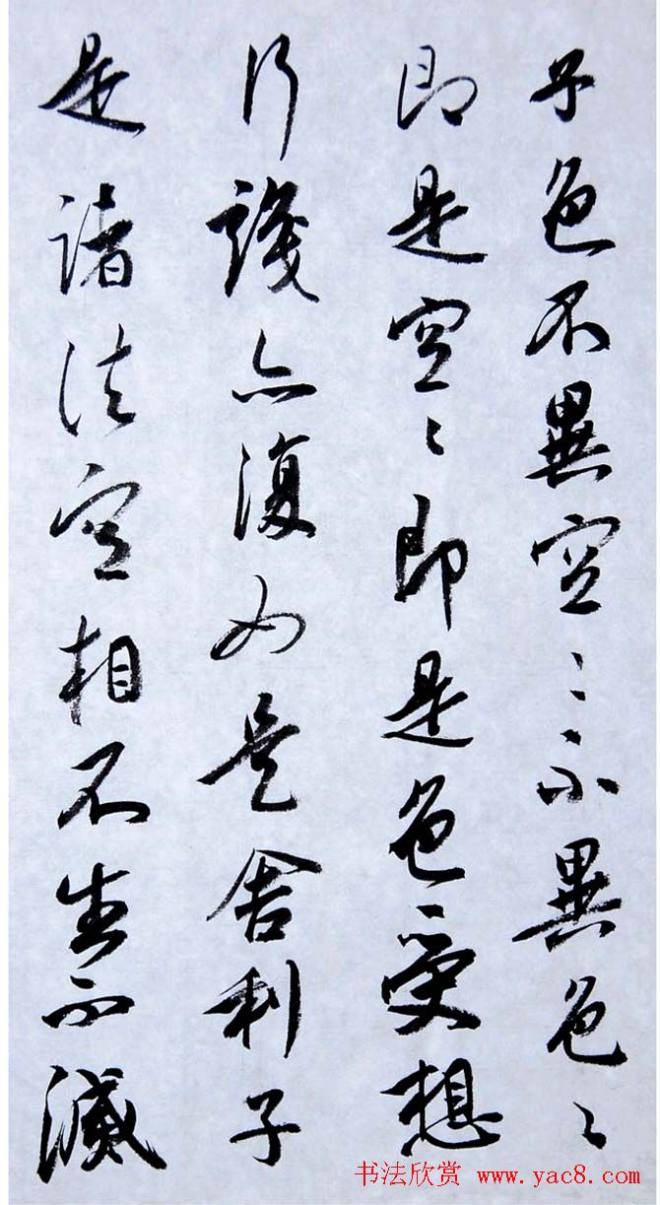 子色不異空〻不異色〻
即是空〻即是色受想
行識亦復如是舍利子
是諸法空相不生不滅
书法欣赏 www.yac8.com